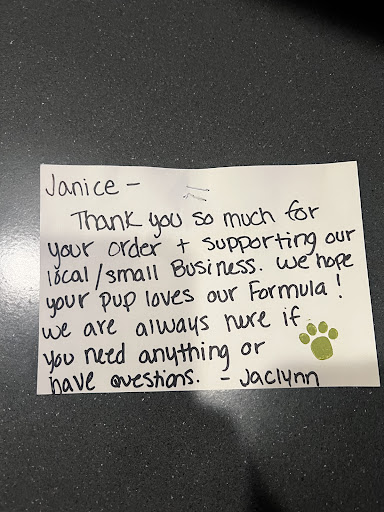 Janice -
Thank you so much for
your order + supporting our
local/small Business. We hope
your pup loves our Formula!
we are always here if
you need anything or
have questions. - Jaclynn